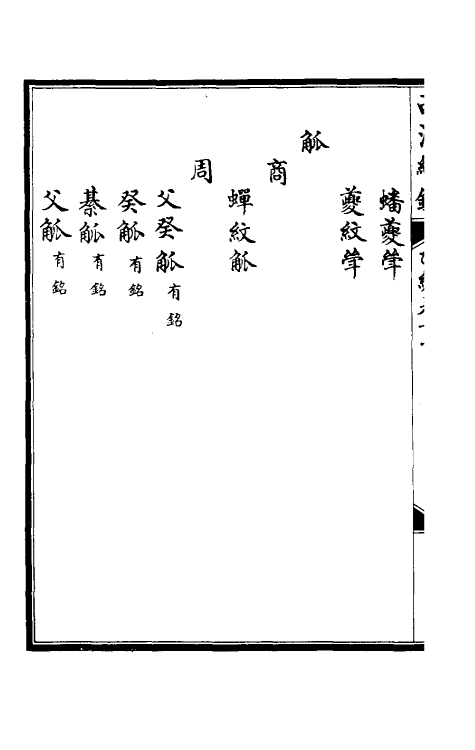 蟠夔斝
夔紋斝
觚
商
蟬紋觚
周
父癸觚有銘
癸觚有銘
綦觚有銘
父觚有銘